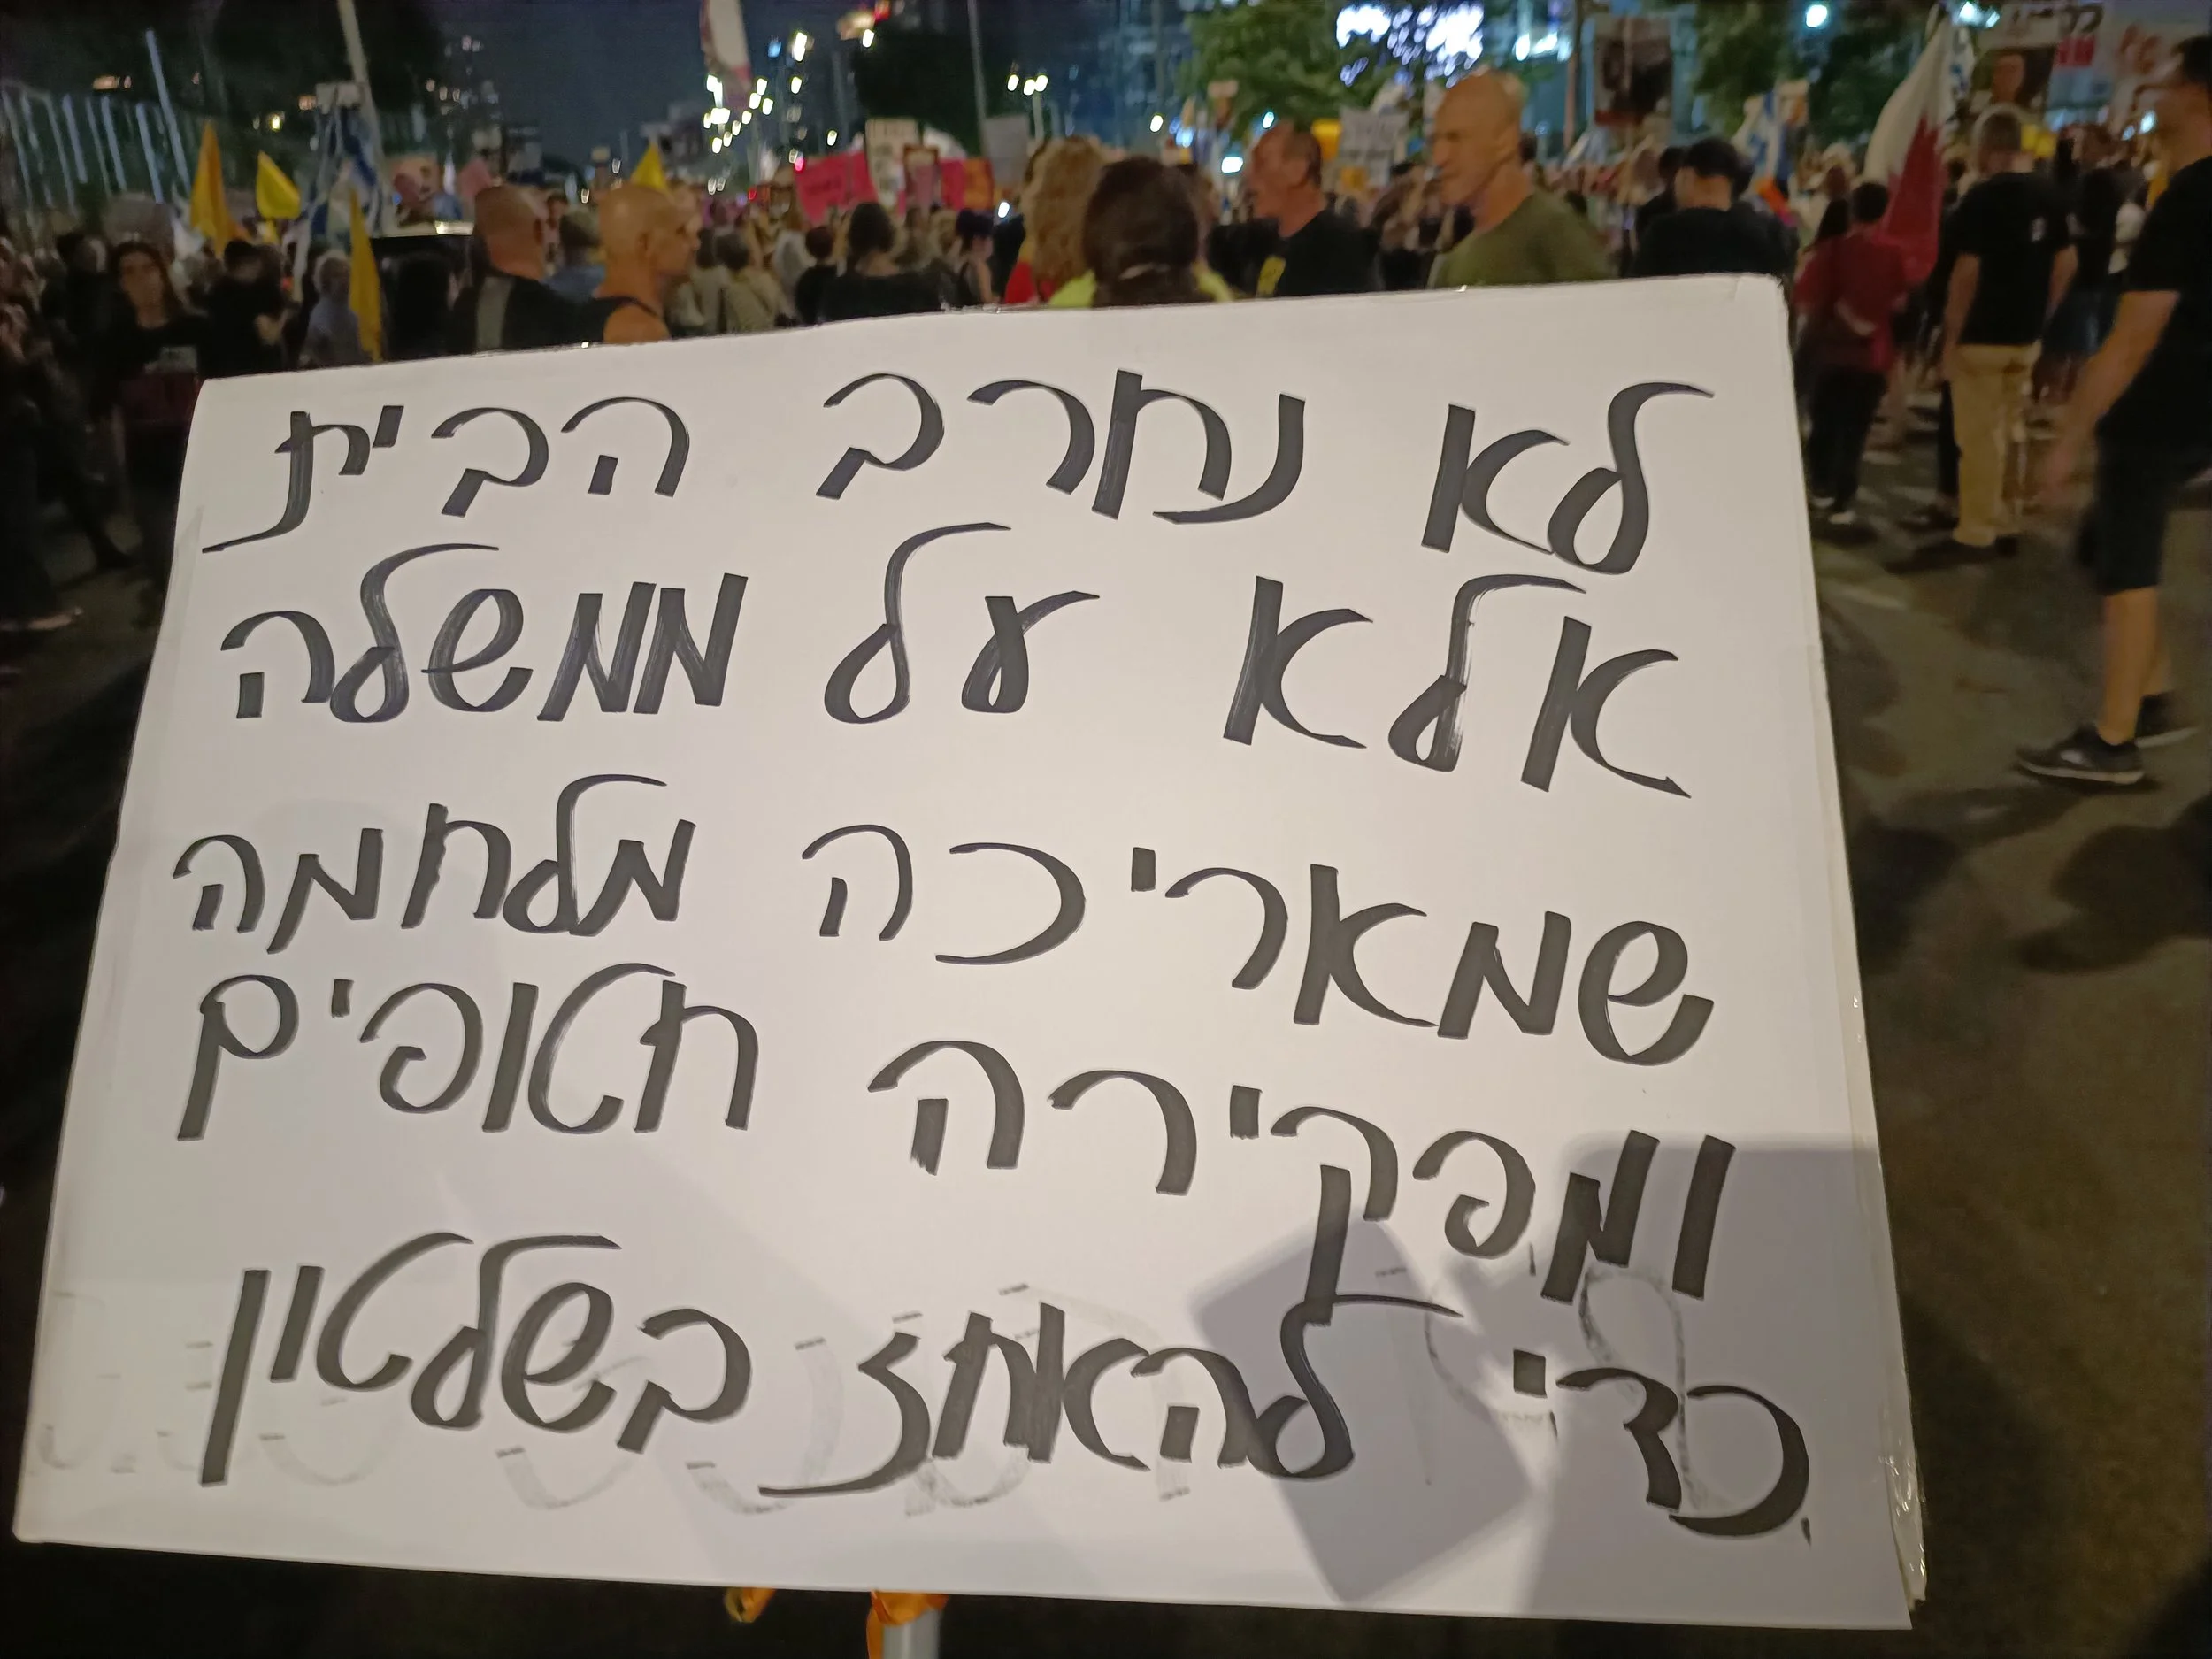 לא נחרב הבית
אלא על ממשלה
שמאריכה מלחמה
ומפקירה חטופים
כדי להאחז בשלטון